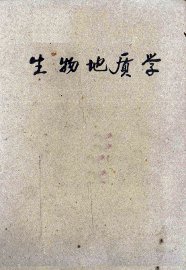 生物地质学